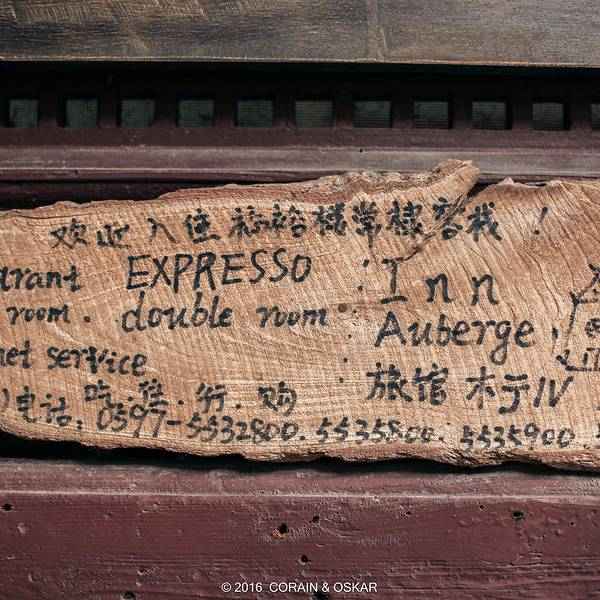 欢迎入住福裕楼常棣客栈！
urant EXPRESSO
room. double room
net service
吃.住.行.购
Inn
Auberge
旅馆 ホテル
电话:0597-5532800.5535800.5535900
© 2016 CORAIN & OSKAR